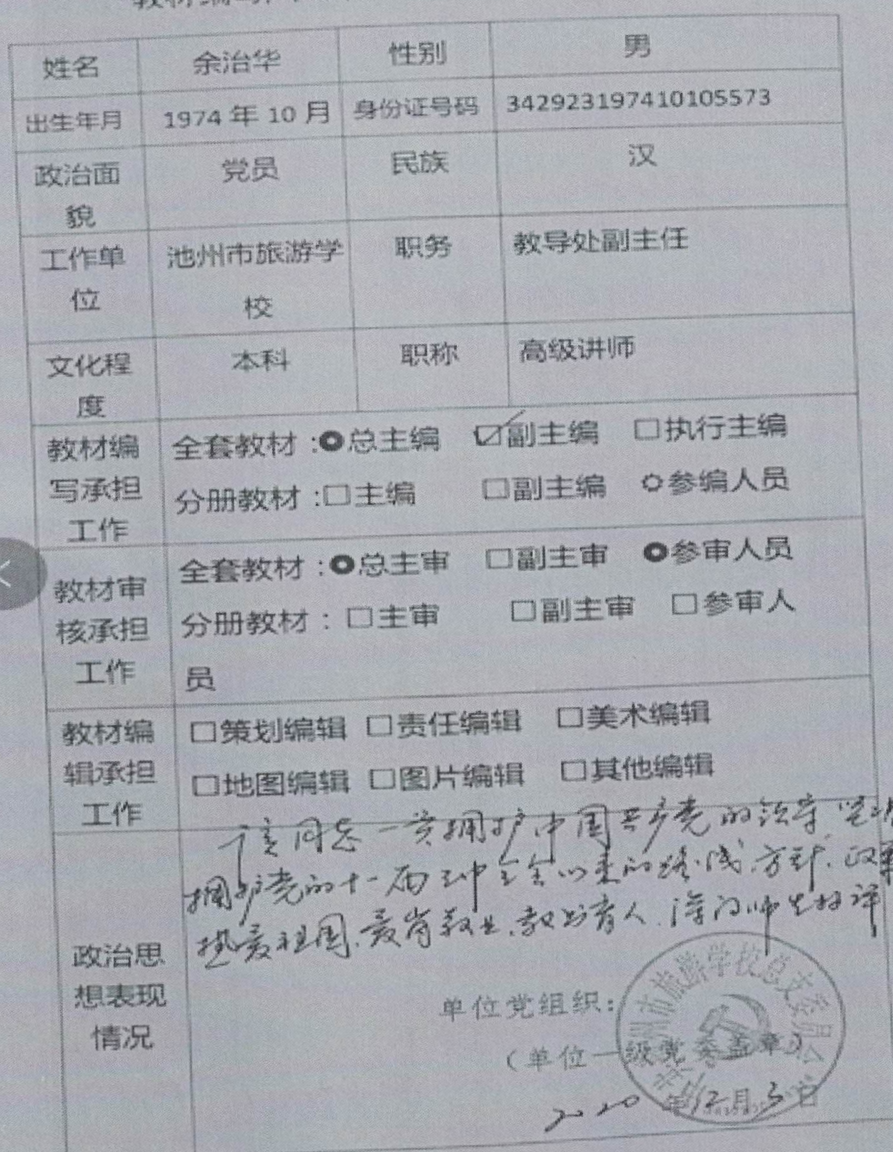 姓名 余治华 性别 男
出生年月 1974 年 10 月 身份证号码 342923197410105573
政治面貌 党员 民族 汉
工作单位 池州市旅游学校 职务 教导处副主任
文化程度 本科 职称 高级讲师
教材编写承担工作
全套教材 : 总主编 ☑副主编 □执行主编
分册教材 : □主编 □副主编 参编人员
教材审核承担工作
全套教材 : 总主审 □副主审 参审人员
分册教材 : □主审 □副主审 □参审人员
教材编辑承担工作
□策划编辑 □责任编辑 □美术编辑
□地图编辑 □图片编辑 □其他编辑
政治思想表现情况
该同志一贯拥护中国共产党的领导,坚决
拥护党的十一届三中全会以来的路线、方针、政策
热爱祖国、爱岗敬业、教书育人、深得师生好评
单位党组织:
(单位一级党委盖章)
州市旅游学校总支委员会
2020 年12月3日